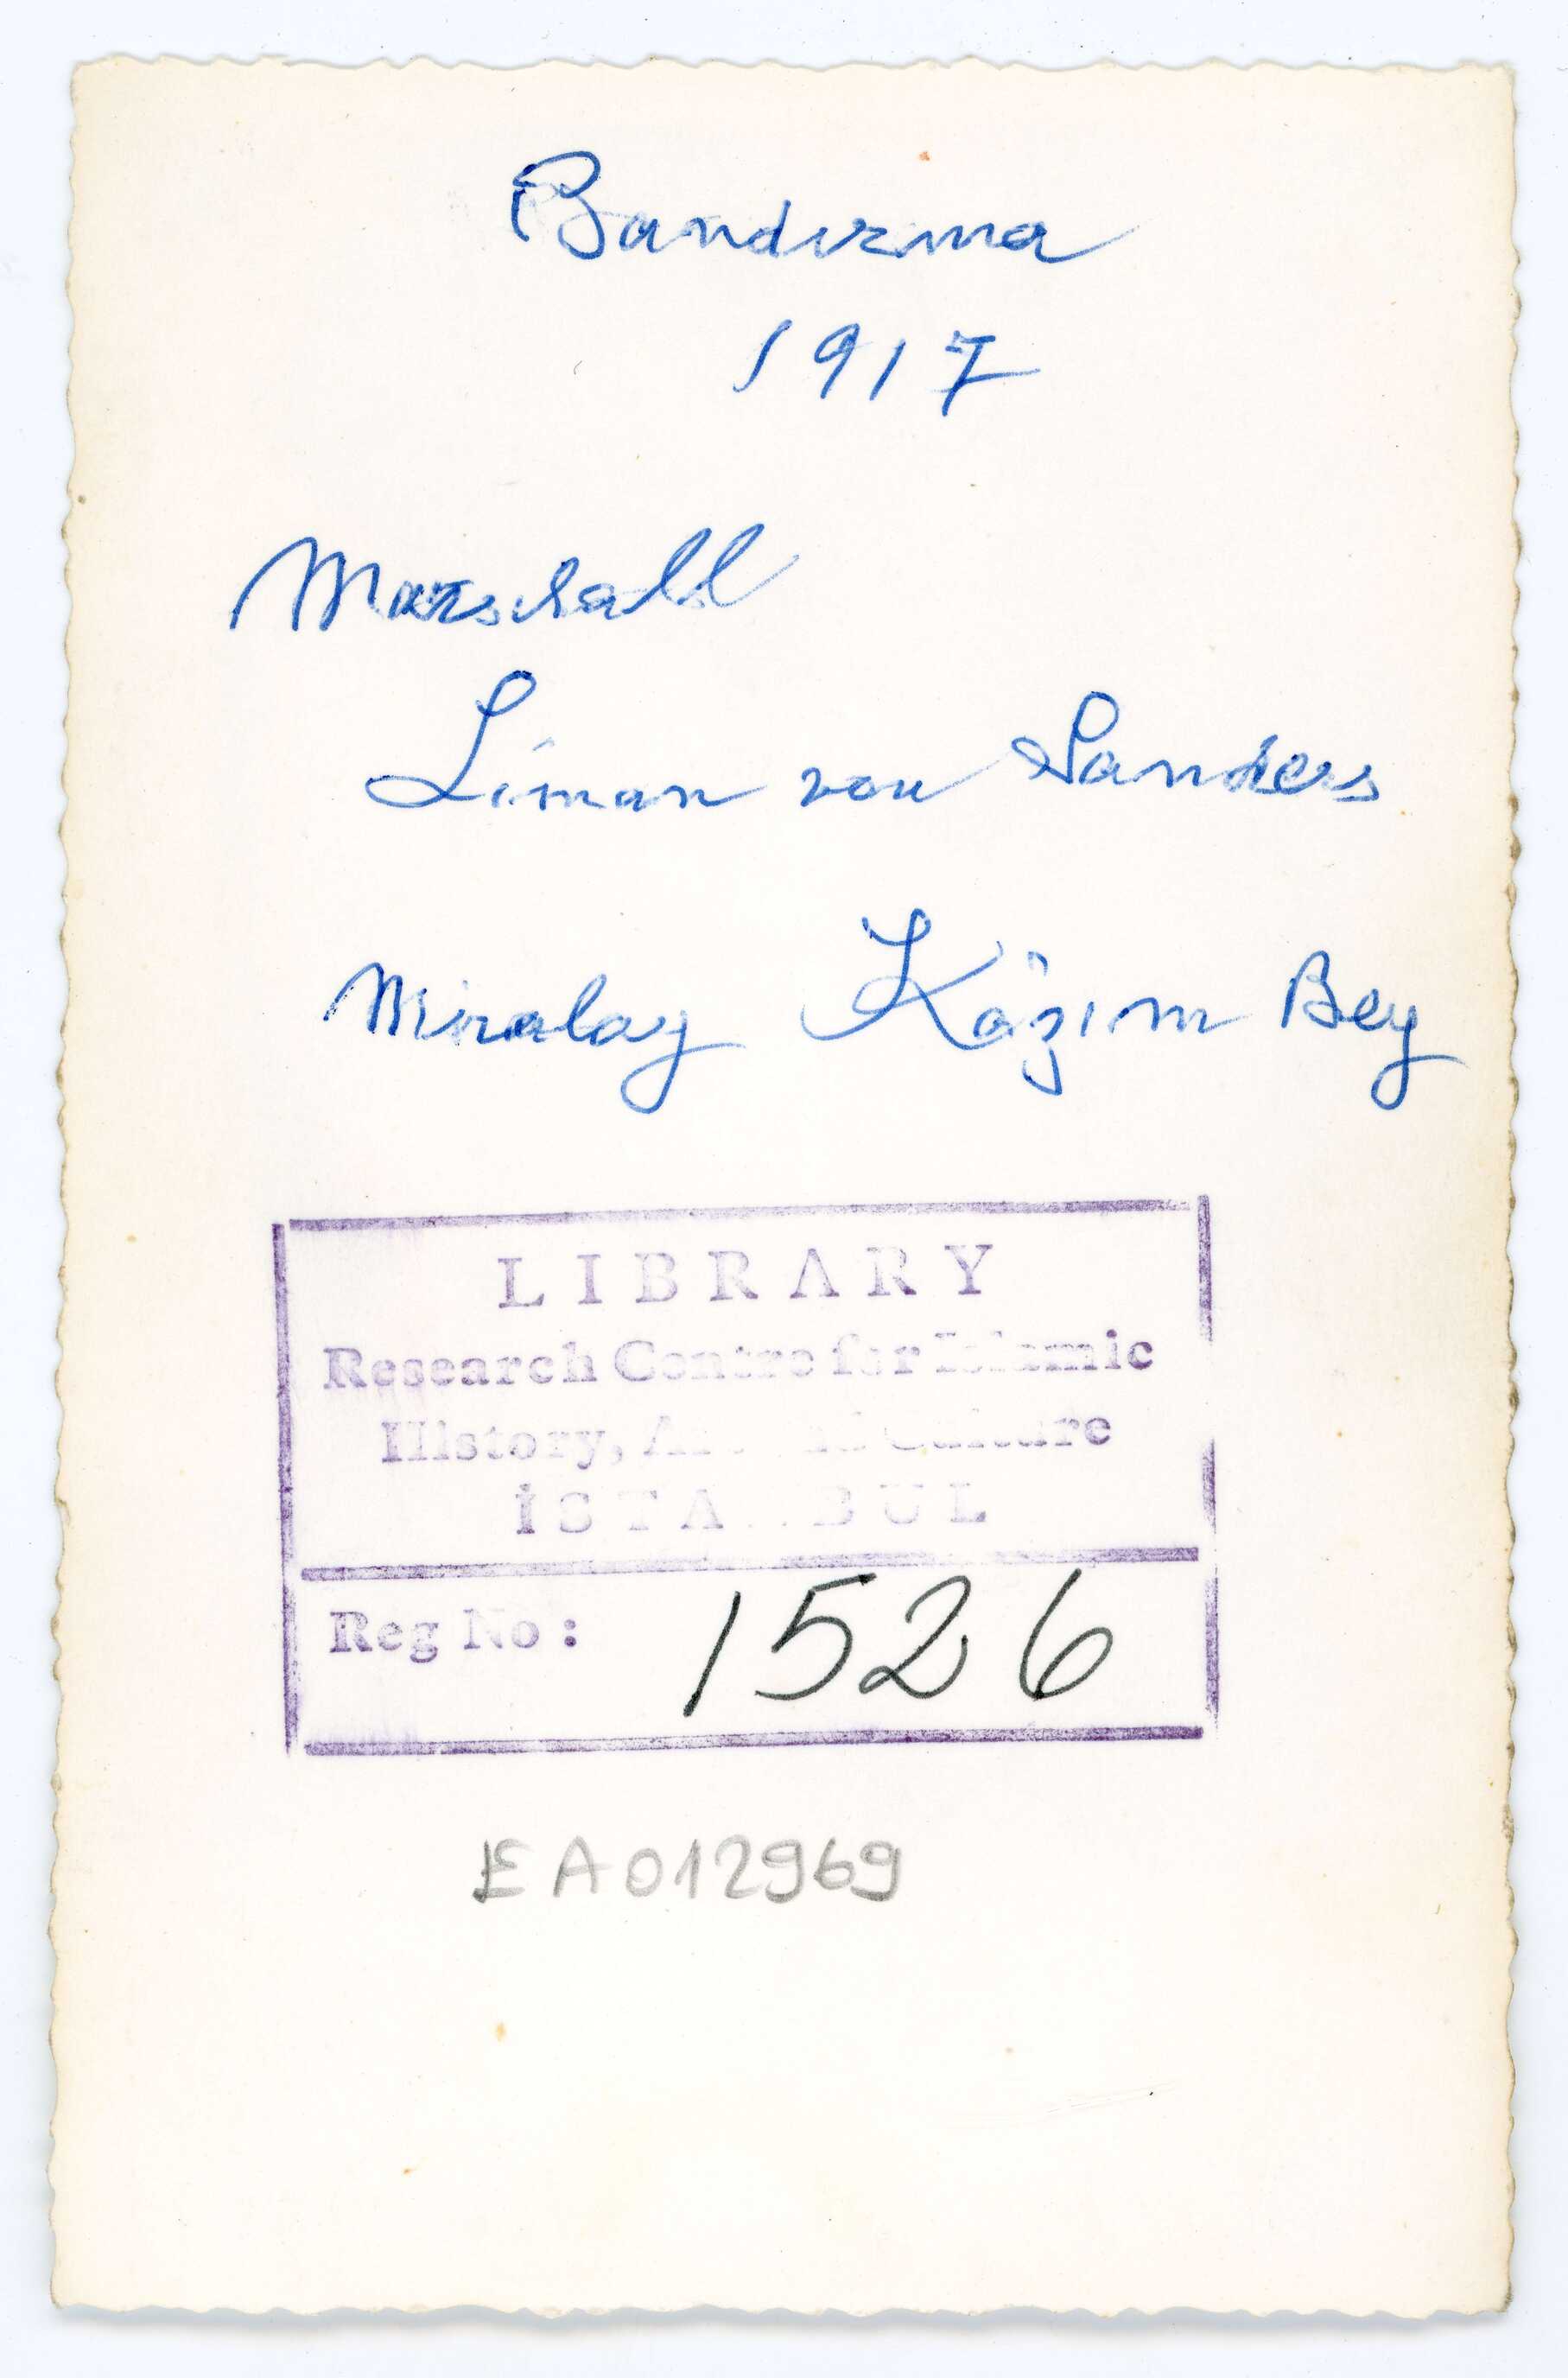 Bandırma
1917
Marschall
Liman von Sanders
Miralay Kâzım Bey
LIBRARY
Research Centre for Islamic
History, Art and Culture
İSTANBUL
Reg No: 1526
EA012969